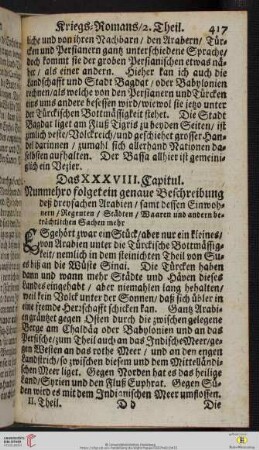 Kriegs-Romans/2. Theil. 417
liche und von ihren Nachbarn / den Arabern / Tür-
cken und Persianern gantz unterschiedene Sprache/
doch kommt sie der großen Persianischen etwas nä-
her/ als einer andern. Hieher kan ich auch die
Landschafft und Stadt Bagdat / oder Babylonien
rechnen/als welche von den Persianern und Türcken
uns andere besessen wird/wiewol sie jetzo unter
der Türckischen Bottmässigkeit stehet. Die Stadt
Bagdat liget am Fluß Tygris zu beyden Seiten/ ist
zimlich veste/Volckreich/und geschiehet grosser Han-
del darinnen / zumahl sich allerhand Nationen da-
selbsten aufhalten. Der Bassa allhier ist gemeinig-
lich ein Vezier.
Das XXXVIII. Capitul.
Nunmehro folget ein genaue Beschreibung
deß dreyfachen Arabien / samt dessen Einwoh-
nern / Regenten / Städten / Waaren und andern be-
trächtlichen Sachen mehr
ES gehört zwar ein Stück/aber nur ein kleines/
von Arabien unter die Türckische Bottmässig-
keit / nemlich in dem steinichten Theil von Su-
es biß an die Wüste Sinai. Die Türcken haben
dann und wann mehr Städte und Häven dieses
Landes eingehabt / aber niemahlen lang behalten/
weil kein Volck unter der Sonnen/ daß sich übler in
eine fremde Herzschafft schicken kan. Gantz Arabi-
en gräntzet gegen Osten durch die zwischen gelegene
Berge am Chaldäa oder Babylonien und an das
Persische/zum Theil auch an das Indische Meer/ge-
gen Westen an das rothe Meer / und an den engen
Landstrich/so zwischen diesem und dem Mittelländi-
schen Meer liget. Gegen Norden hat es das heilige
Land/Syrien und den Fluß Euphrat. Gegen Sü-
den wird es mit dem Indianischen Meer umflossen.
II. Theil. D d Die